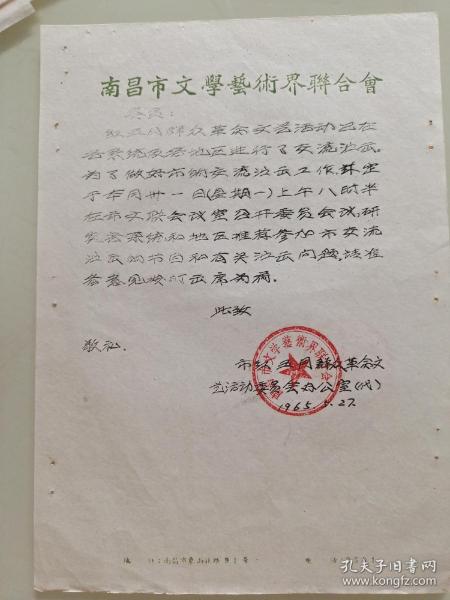 南昌市文學藝術界聯合會
委员:
红五月群众革命文艺活动已在
各系统及各地区进行了交流汇演。
为了做好市的交流汇演工作,兹定
于本月卅一日(星期一)上午八时半
在市文联会议室召开委员会议,研
究各系统和地区推荐参加市交流
汇演的节目和有关汇演问题,请准
备意见按时出席为荷。
此致
敬礼
市红五月群众革命文
艺活动委员会办公室(代)
1965.5.27.
南昌市文学藝術界联合会
孔夫子旧书网